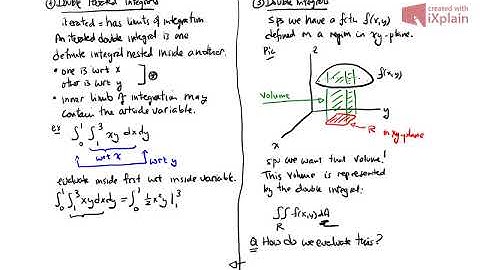 ① Double Iterated Integrals
iterated = has limits of integration
An iterated double integral is one
definite integral nested inside another.
• one is wrt x
other is wrt y
• inner limits of integration may
contain the outside variable.
ex ∫₀¹ ∫₁³ xy dxdy
wrt x
wrt y
evaluate inside first wrt inside variable.
∫₀¹ ∫₁³ xydxdy = ∫₀¹ ½x²y|₁³
② Double Integrals
sps we have a fctn f(x,y)
defined on a region in xy-plane.
Pic
z
f(x,y)
volume
y
R in xy-plane
x
sps we want that volume!
This volume is represented
by the double integral:
∬ f(x,y)dA
R
Q How do we evaluate this?
created with
iXplain